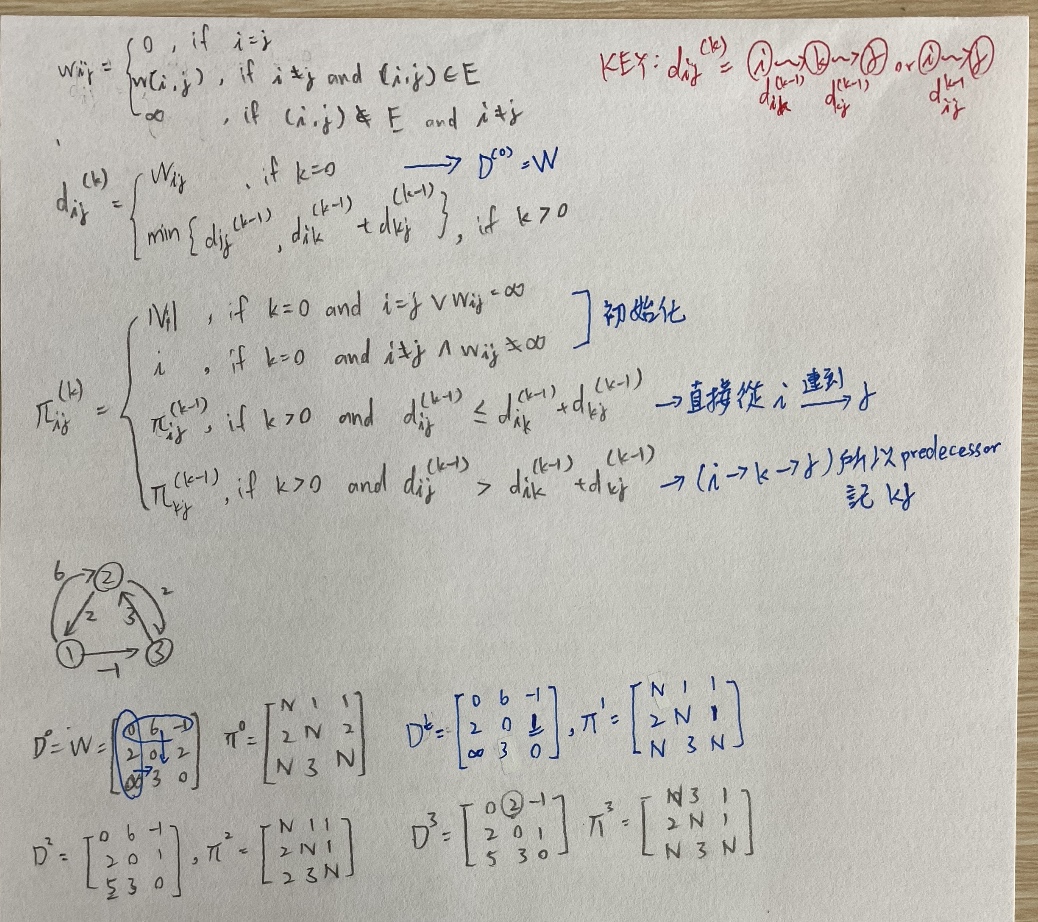 wij = { 0 , if i=j
w(i,j) , if i≠j and (i,j) ∈ E
∞ , if (i,j) ∉ E and i≠j
KEY: dij^(k) = (i)⇝(k)⇝(j) or (i)⇝(j)
dik^(k-1) dkj^(k-1) dij^k-1
dij^(k) = { Wij , if k=0 → D^(0) = W
min{dij^(k-1), dik^(k-1) + dkj^(k-1)}, if k>0
πij^(k) = { Nil , if k=0 and i=j ∨ wij=∞
i , if k=0 and i≠j ∧ wij≠∞ ] 初始化
πij^(k-1), if k>0 and dij^(k-1) ≤ dik^(k-1) + dkj^(k-1) → 直接從 i 連到→ j
πkj^(k-1), if k>0 and dij^(k-1) > dik^(k-1) + dkj^(k-1) → (i→k→j) 所以 predecessor
記 kj
6 2 2
2 3
1 -1 3
D^0 = W = [0 6 -1
2 0 2
∞ 3 0]
π^0 = [N 1 1
2 N 2
N 3 N]
D^1 = [0 6 -1
2 0 1
∞ 3 0]
, π^1 = [N 1 1
2 N 1
N 3 N]
D^2 = [0 6 -1
2 0 1
5 3 0]
, π^2 = [N 1 1
2 N 1
2 3 N]
D^3 = [0 2 -1
2 0 1
5 3 0]
π^3 = [N 3 1
2 N 1
N 3 N]